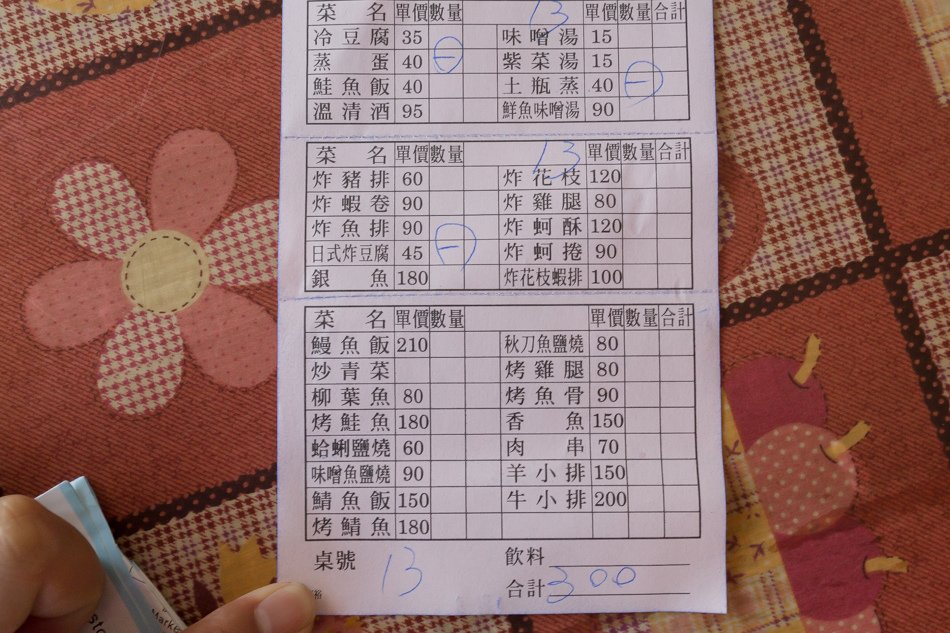 菜名 單價 數量 13 單價 數量 合計
冷豆腐 35 味噌湯 15
蒸蛋 40 ㊀ 紫菜湯 15
鮭魚飯 40 土瓶蒸 40 ㊀
溫清酒 95 鮮魚味噌湯 90
菜名 單價 數量 13 單價 數量 合計
炸豬排 60 炸花枝 120
炸蝦卷 90 炸雞腿 80
炸魚排 90 炸蚵酥 120
日式炸豆腐 45 ㊀ 炸蚵捲 90
銀魚 180 炸花枝蝦排 100
菜名 單價 數量 單價 數量 合計
鰻魚飯 210 秋刀魚鹽燒 80
炒青菜 烤雞腿 80
柳葉魚 80 烤魚骨 90
烤鮭魚 180 香魚 150
蛤蜊鹽燒 60 肉串 70
味噌魚鹽燒 90 羊小排 150
鯖魚飯 150 牛小排 200
烤鯖魚 180
桌號 13 飲料
合計 300